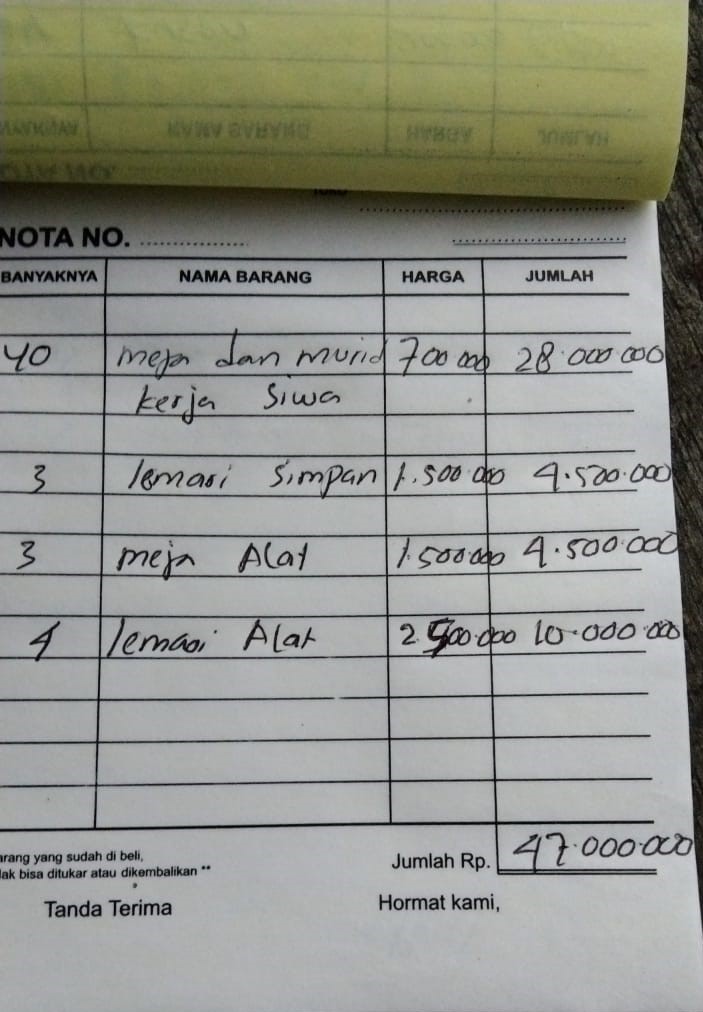 NOTA NO.
BANYAKNYA NAMA BARANG HARGA JUMLAH
40 meja dan murid 700 000 28.000 000
kerja Siwa
3 lemari Simpan 1.500.000 4.500.000
3 meja Alat 1.500.000 4.500.000
4 lemari Alat 2.500.000 10.000.000
arang yang sudah di beli,
lak bisa ditukar atau dikembalikan **
Jumlah Rp. 47.000.000
Tanda Terima Hormat kami,